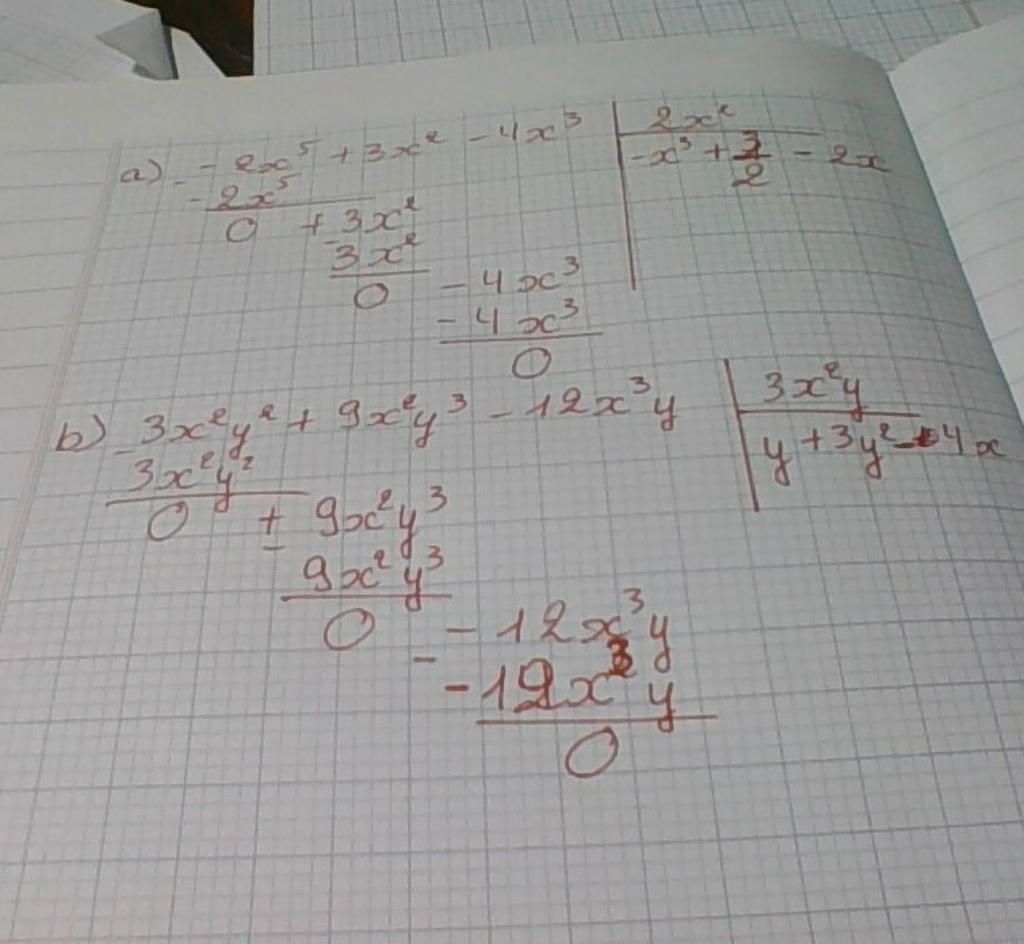 a) - 2x⁵ + 3x² - 4x³ | 2x²
- - 2x⁵ | -x³ + 3/2 - 2x
0 + 3x²
- 3x²
0 - 4x³
- 4x³
0
b) 3x²y² + 9x²y³ - 12x³y | 3x²y
- 3x²y² | y + 3y² - 4x
0 + 9x²y³
- 9x²y³
0 - 12x³y
- - 12x³y
0